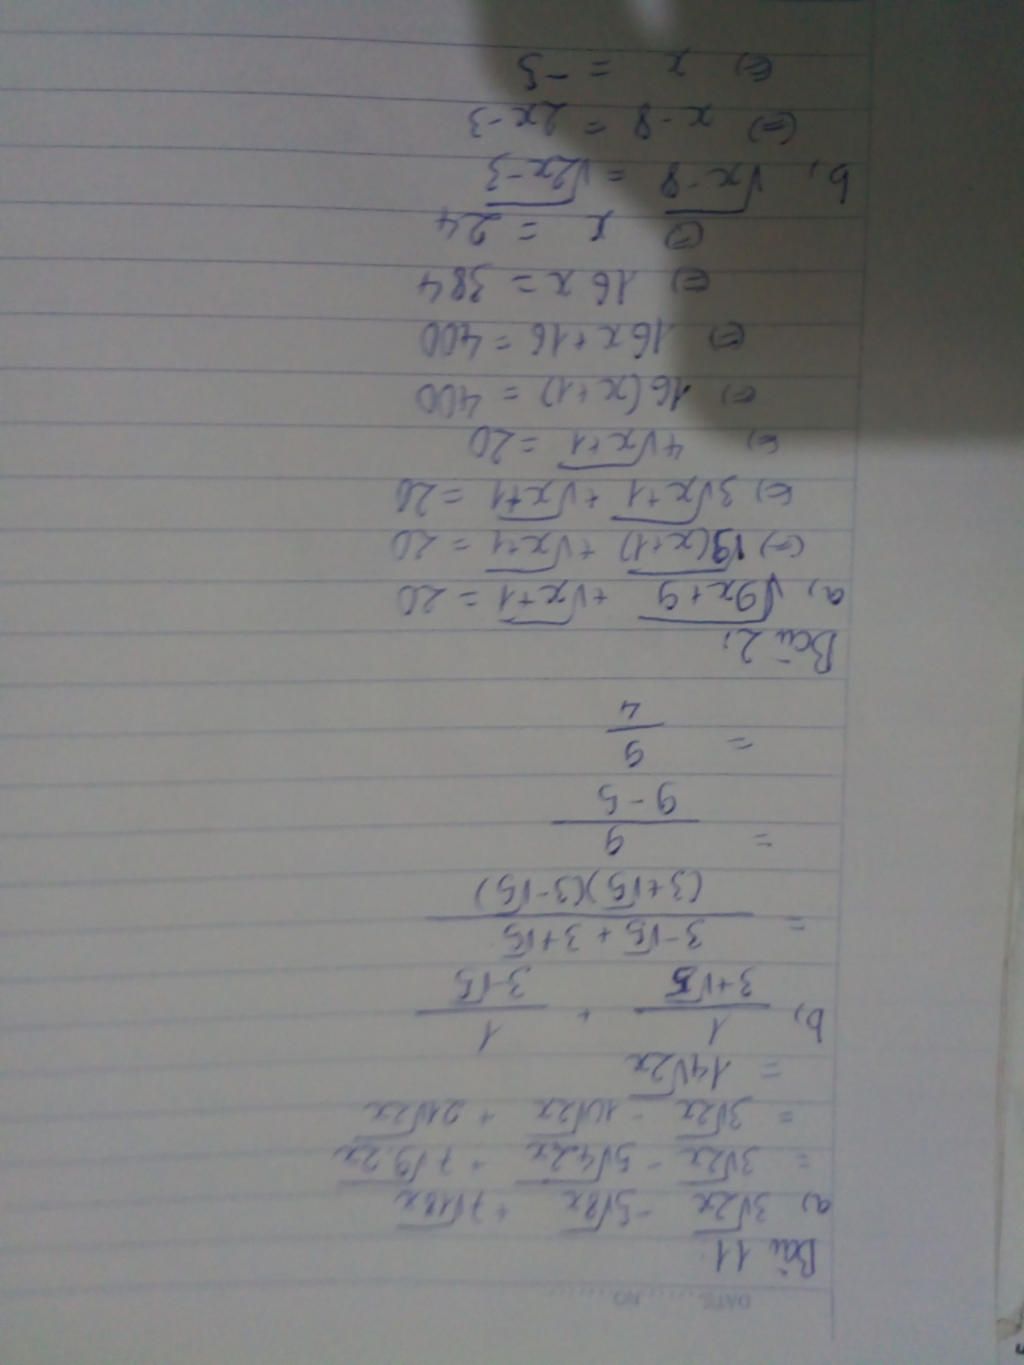 DATE NO
Bài 11
a, 3√2x - 5√8x + 7√18x
= 3√2x - 5√4.2x + 7√9.2x
= 3√2x - 10√2x + 21√2x
= 14√2x
b, 1/(3+√5) + 1/(3-√5)
= (3-√5 + 3+√5)/((3+√5)(3-√5))
= 9/(9-5)
= 9/4
Bài 2:
a, √9x+9 + √x+1 = 20
(=) √9(x+1) + √x+1 = 20
(=) 3√x+1 + √x+1 = 20
(=) 4√x+1 = 20
(=) 16(x+1) = 400
(=) 16x+16 = 400
(=) 16x = 384
(=) x = 24
b, √x-8 = √2x-3
(=) x-8 = 2x-3
(=) x = -5